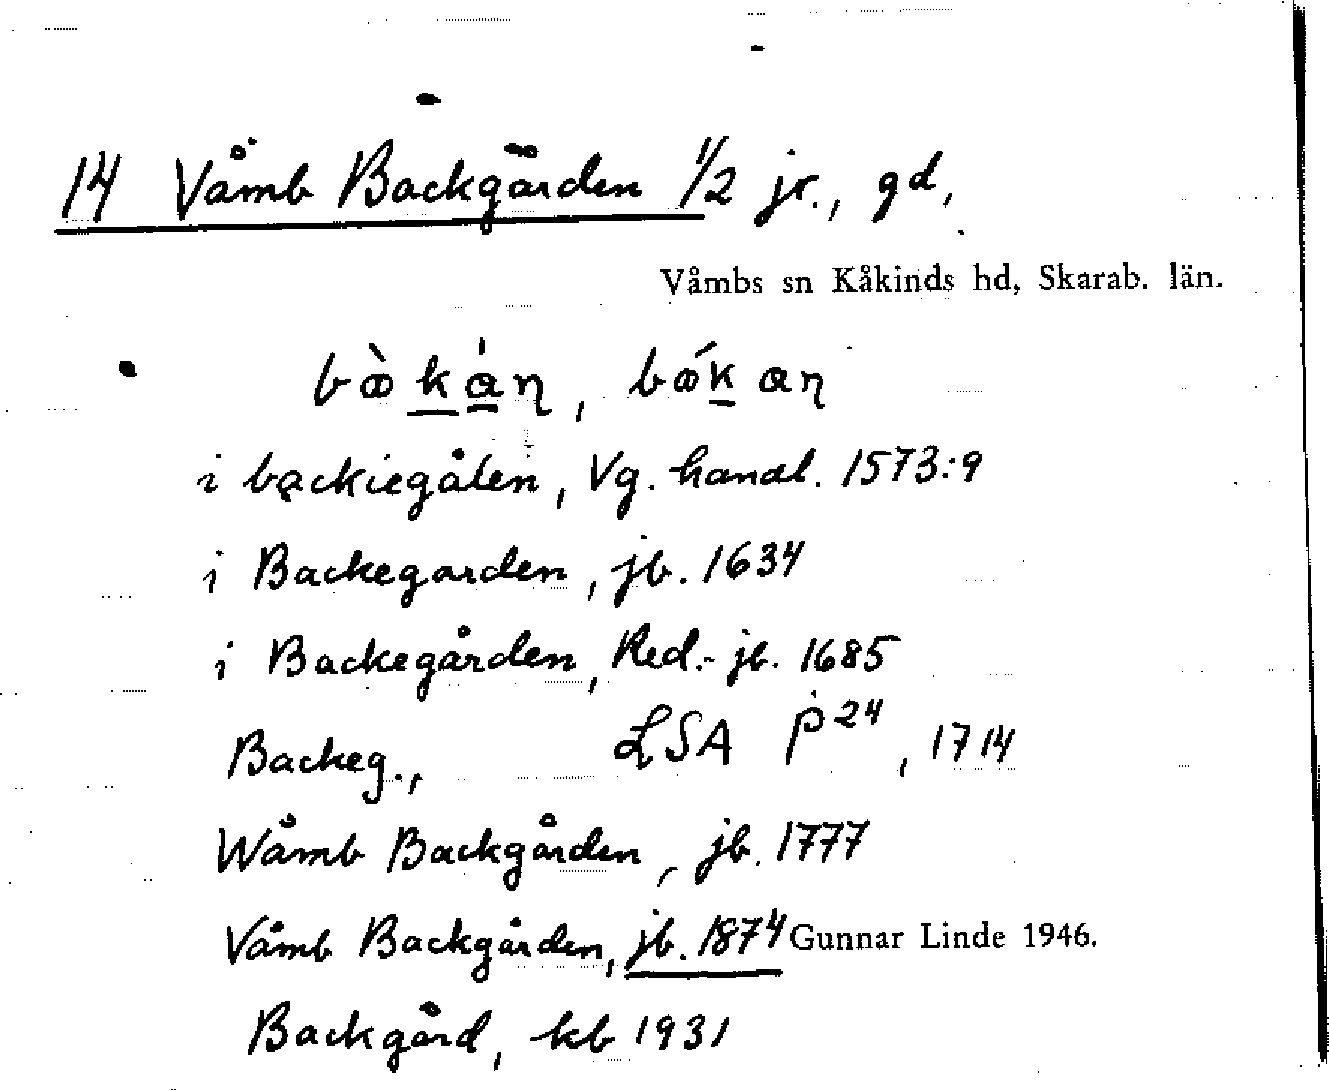 14 Våmb Backgården 1/2 jr., gd,
Våmbs sn Kåkinds hd, Skarab. län.
i backiegålen, Vg. handl. 1573:9
i Backegarden, jb. 1634
i Backegården, Red.-jb. 1685
Backeg., LSA P24, 1714
Wåmb Backgården, jb. 1777
Våmb Backgården, jb. 1874 Gunnar Linde 1946.
Backgård, kb 1931